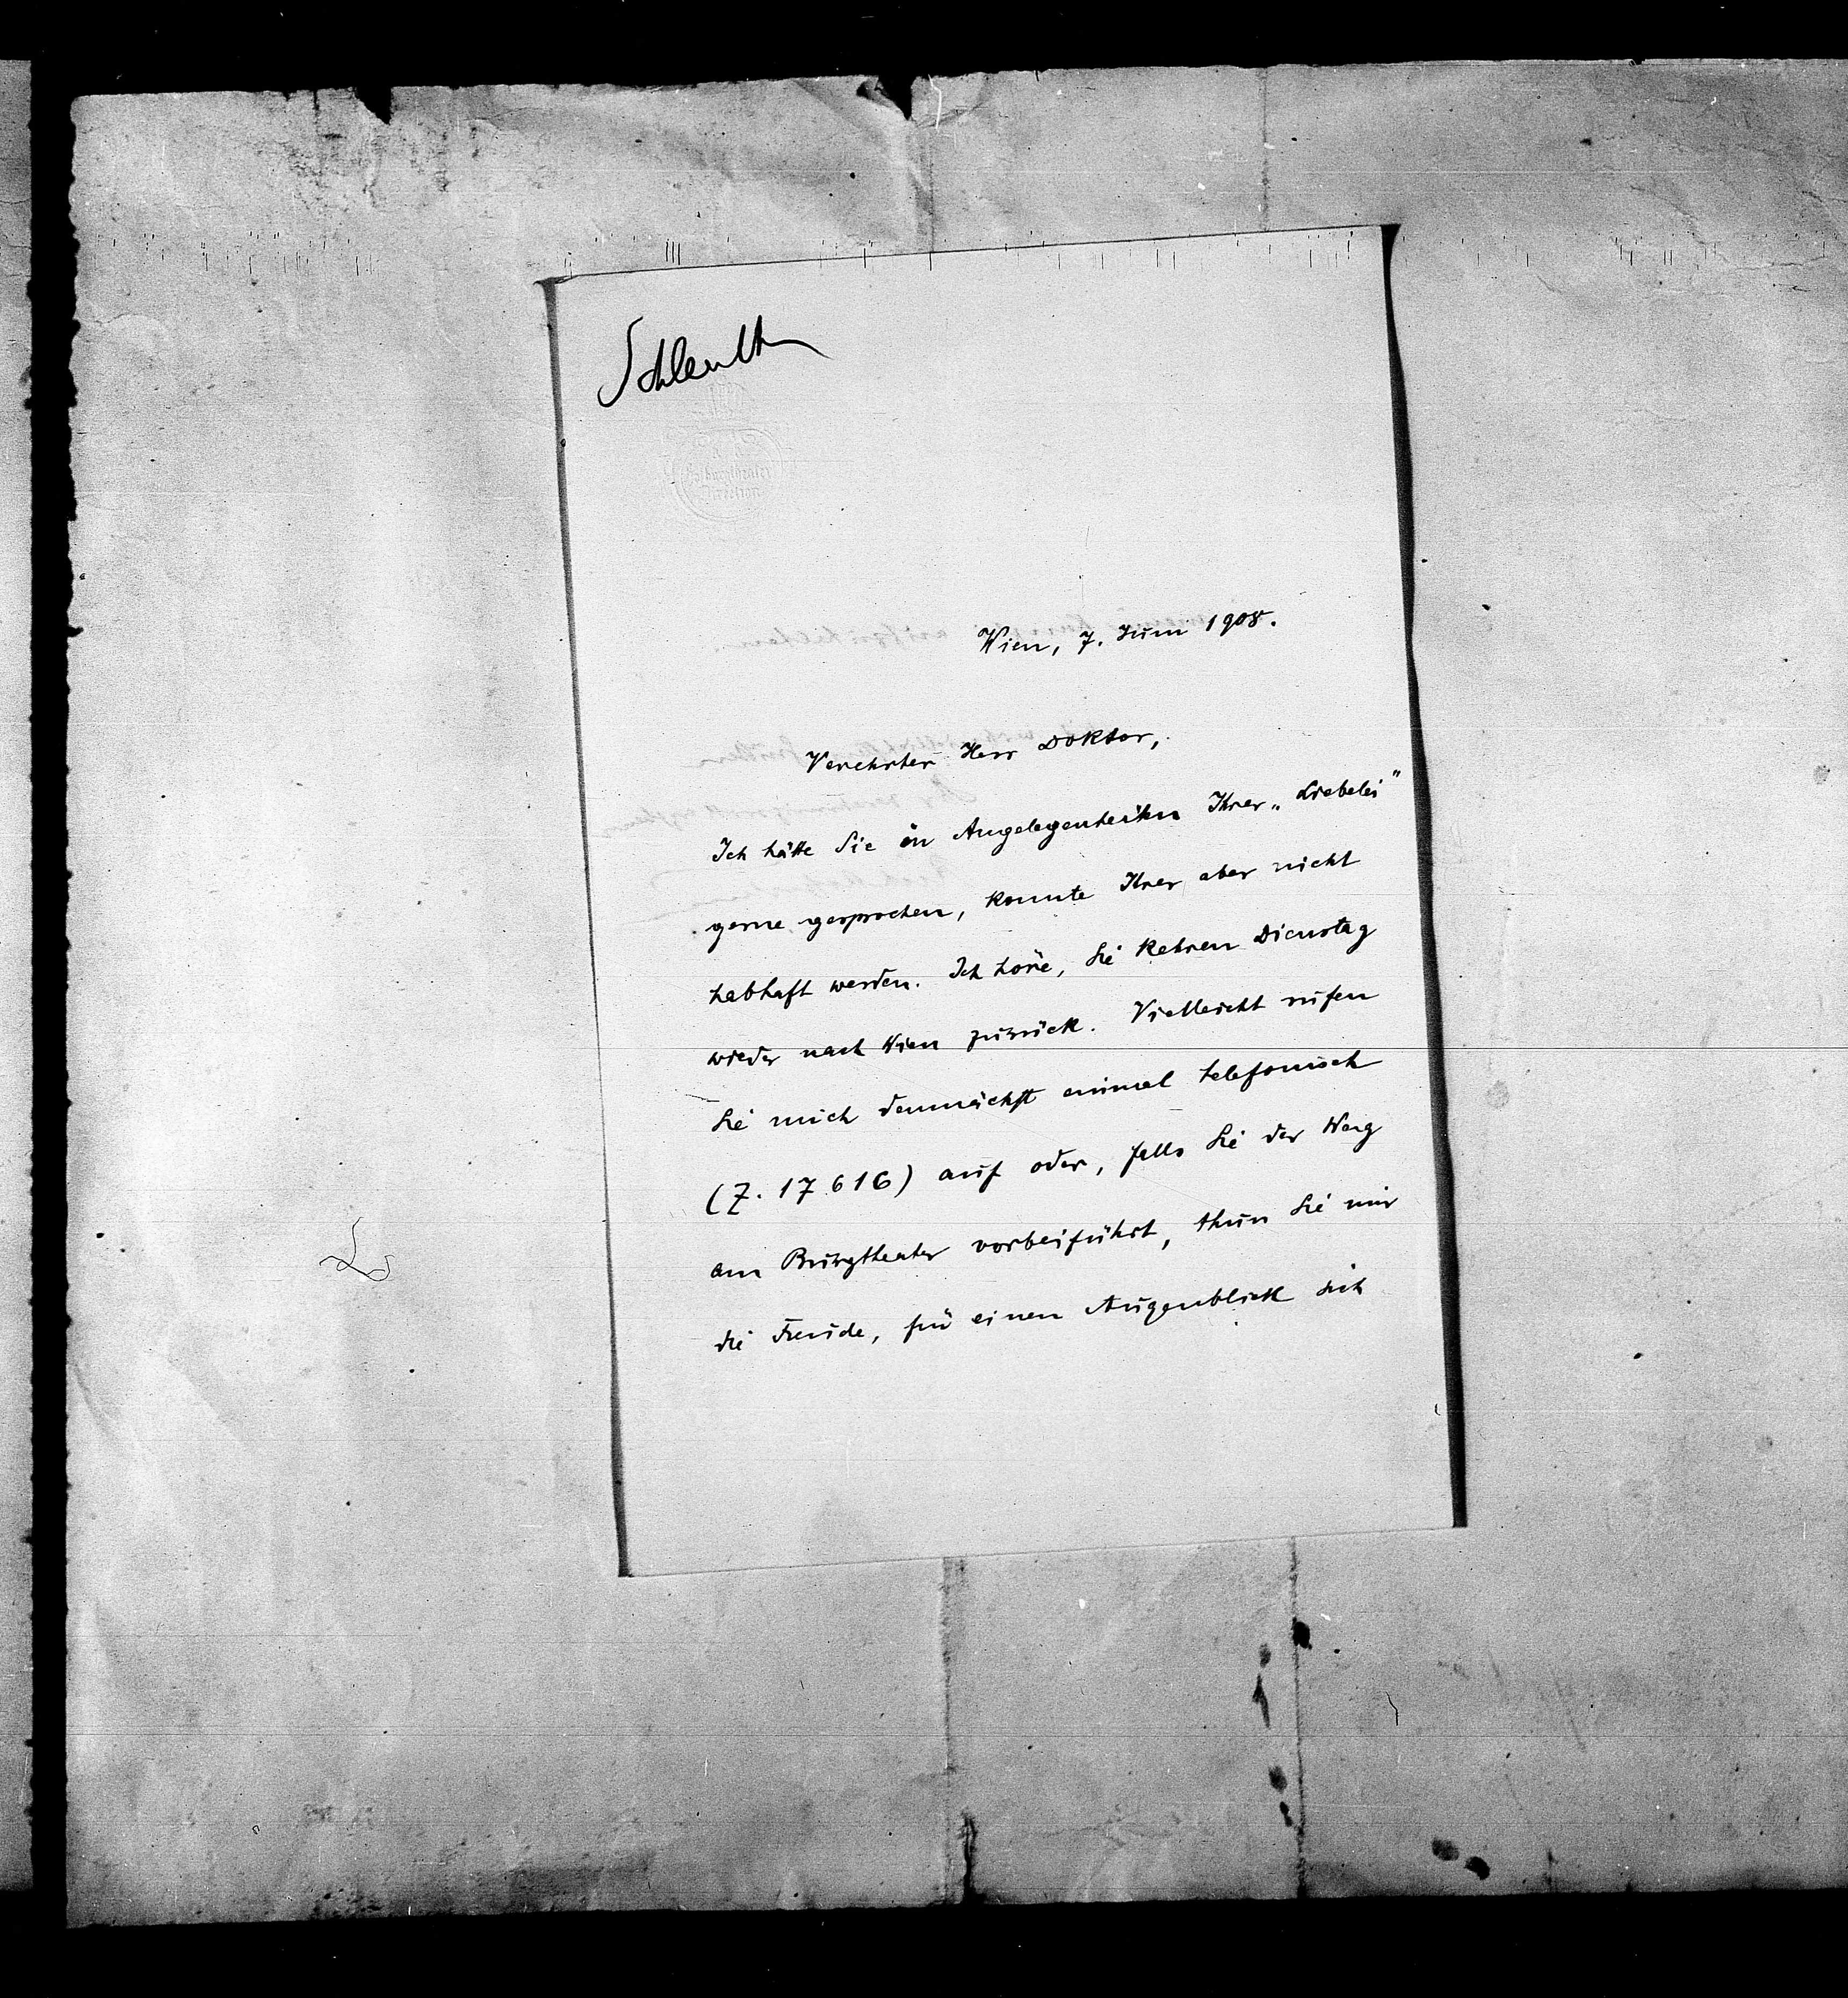 Schlenth
K. K.
Hofburgtheater
Direction
Wien, 7. Juni 1908.
Verehrter Herr Doktor,
Ich hätte Sie in Angelegenheiten Ihrer „Liebelei"
gerne gesprochen, konnte Ihrer aber nicht
habhaft werden. Ich höre, Sie kehren Dienstag
wieder nach Wien zurück. Vielleicht rufen
Sie mich demnächst einmal telefonisch
(Z. 17 616) auf oder, falls Sie der Weg
am Burgtheater vorbeiführt, thun Sie mir
die Freude, für einen Augenblick sich